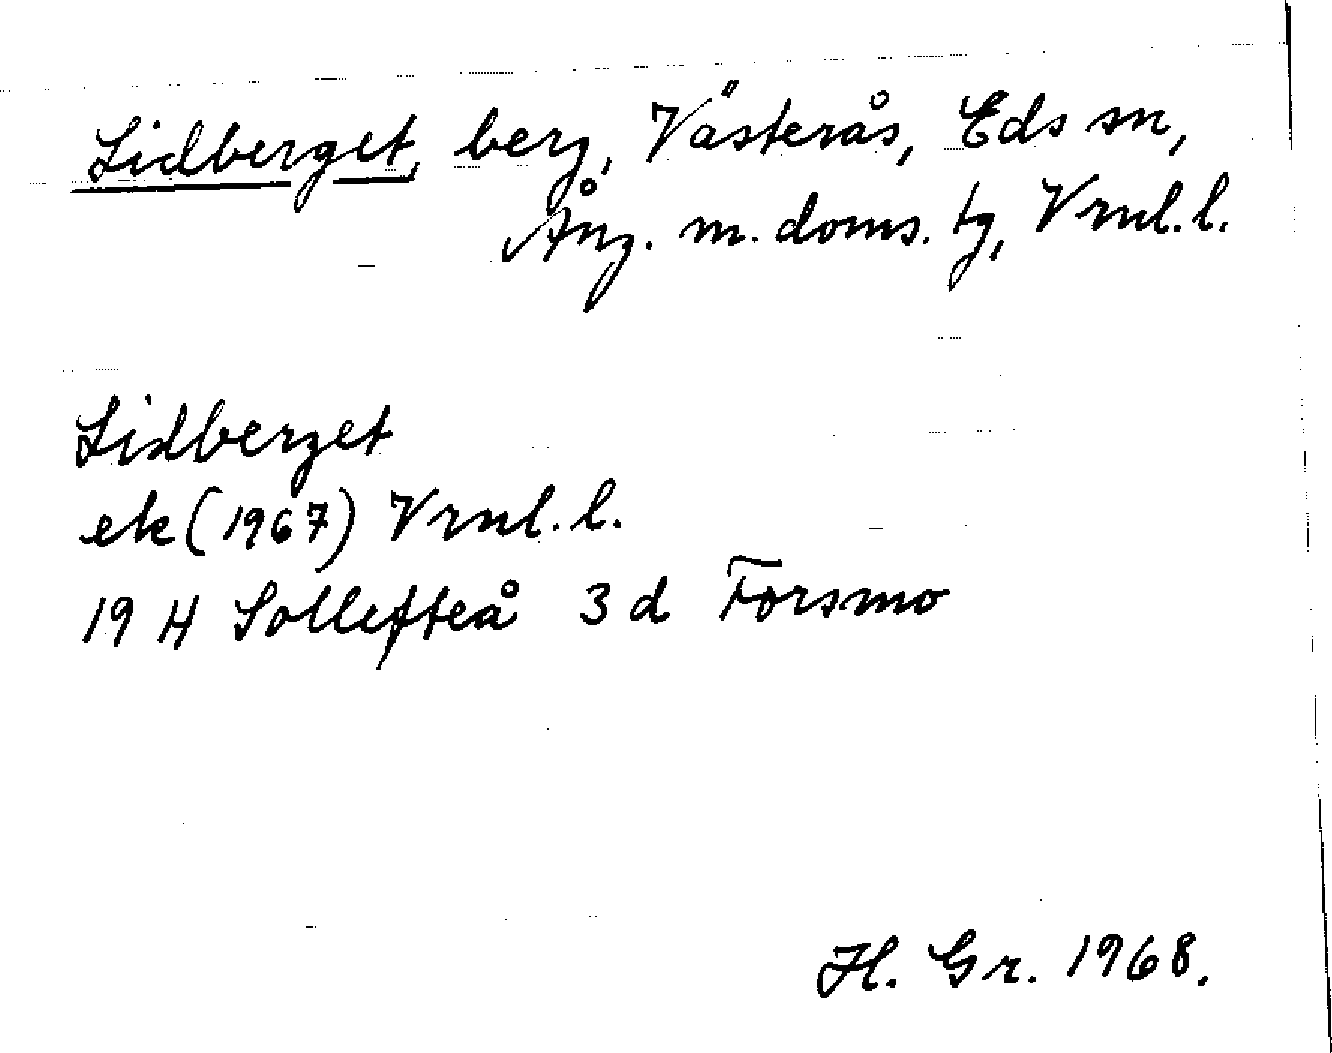 Lidberget, berg, Västerås, Eds sn,
Ång. m. doms. tg, Vrnl. l.
Lidberget
ek (1967) Vrnl. l.
19 H Sollefteå 3 d Forsmo
H. Gr. 1968.